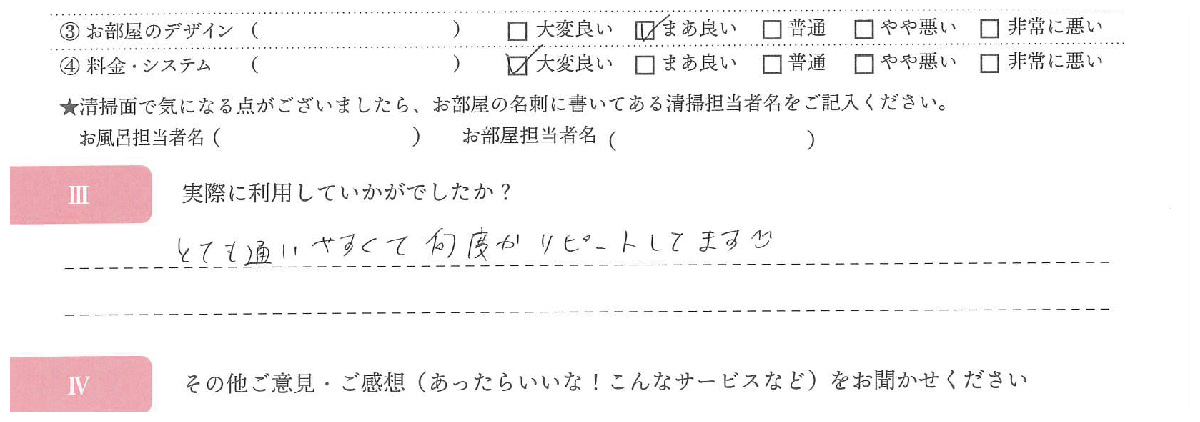 ③ お部屋のデザイン （　　　　　　　　） □ 大変良い ☑ まあ良い □ 普通 □ やや悪い □ 非常に悪い
④ 料金・システム （　　　　　　　　） ☑ 大変良い □ まあ良い □ 普通 □ やや悪い □ 非常に悪い
★清掃面で気になる点がございましたら、お部屋の名刺に書いてある清掃担当者名をご記入ください。
お風呂担当者名（　　　　　　　　） お部屋担当者名（　　　　　　　　）
Ⅲ 実際に利用していかがでしたか？
とても通いやすくて何度かリピートしてます
Ⅳ その他ご意見・ご感想（あったらいいな！こんなサービスなど）をお聞かせください